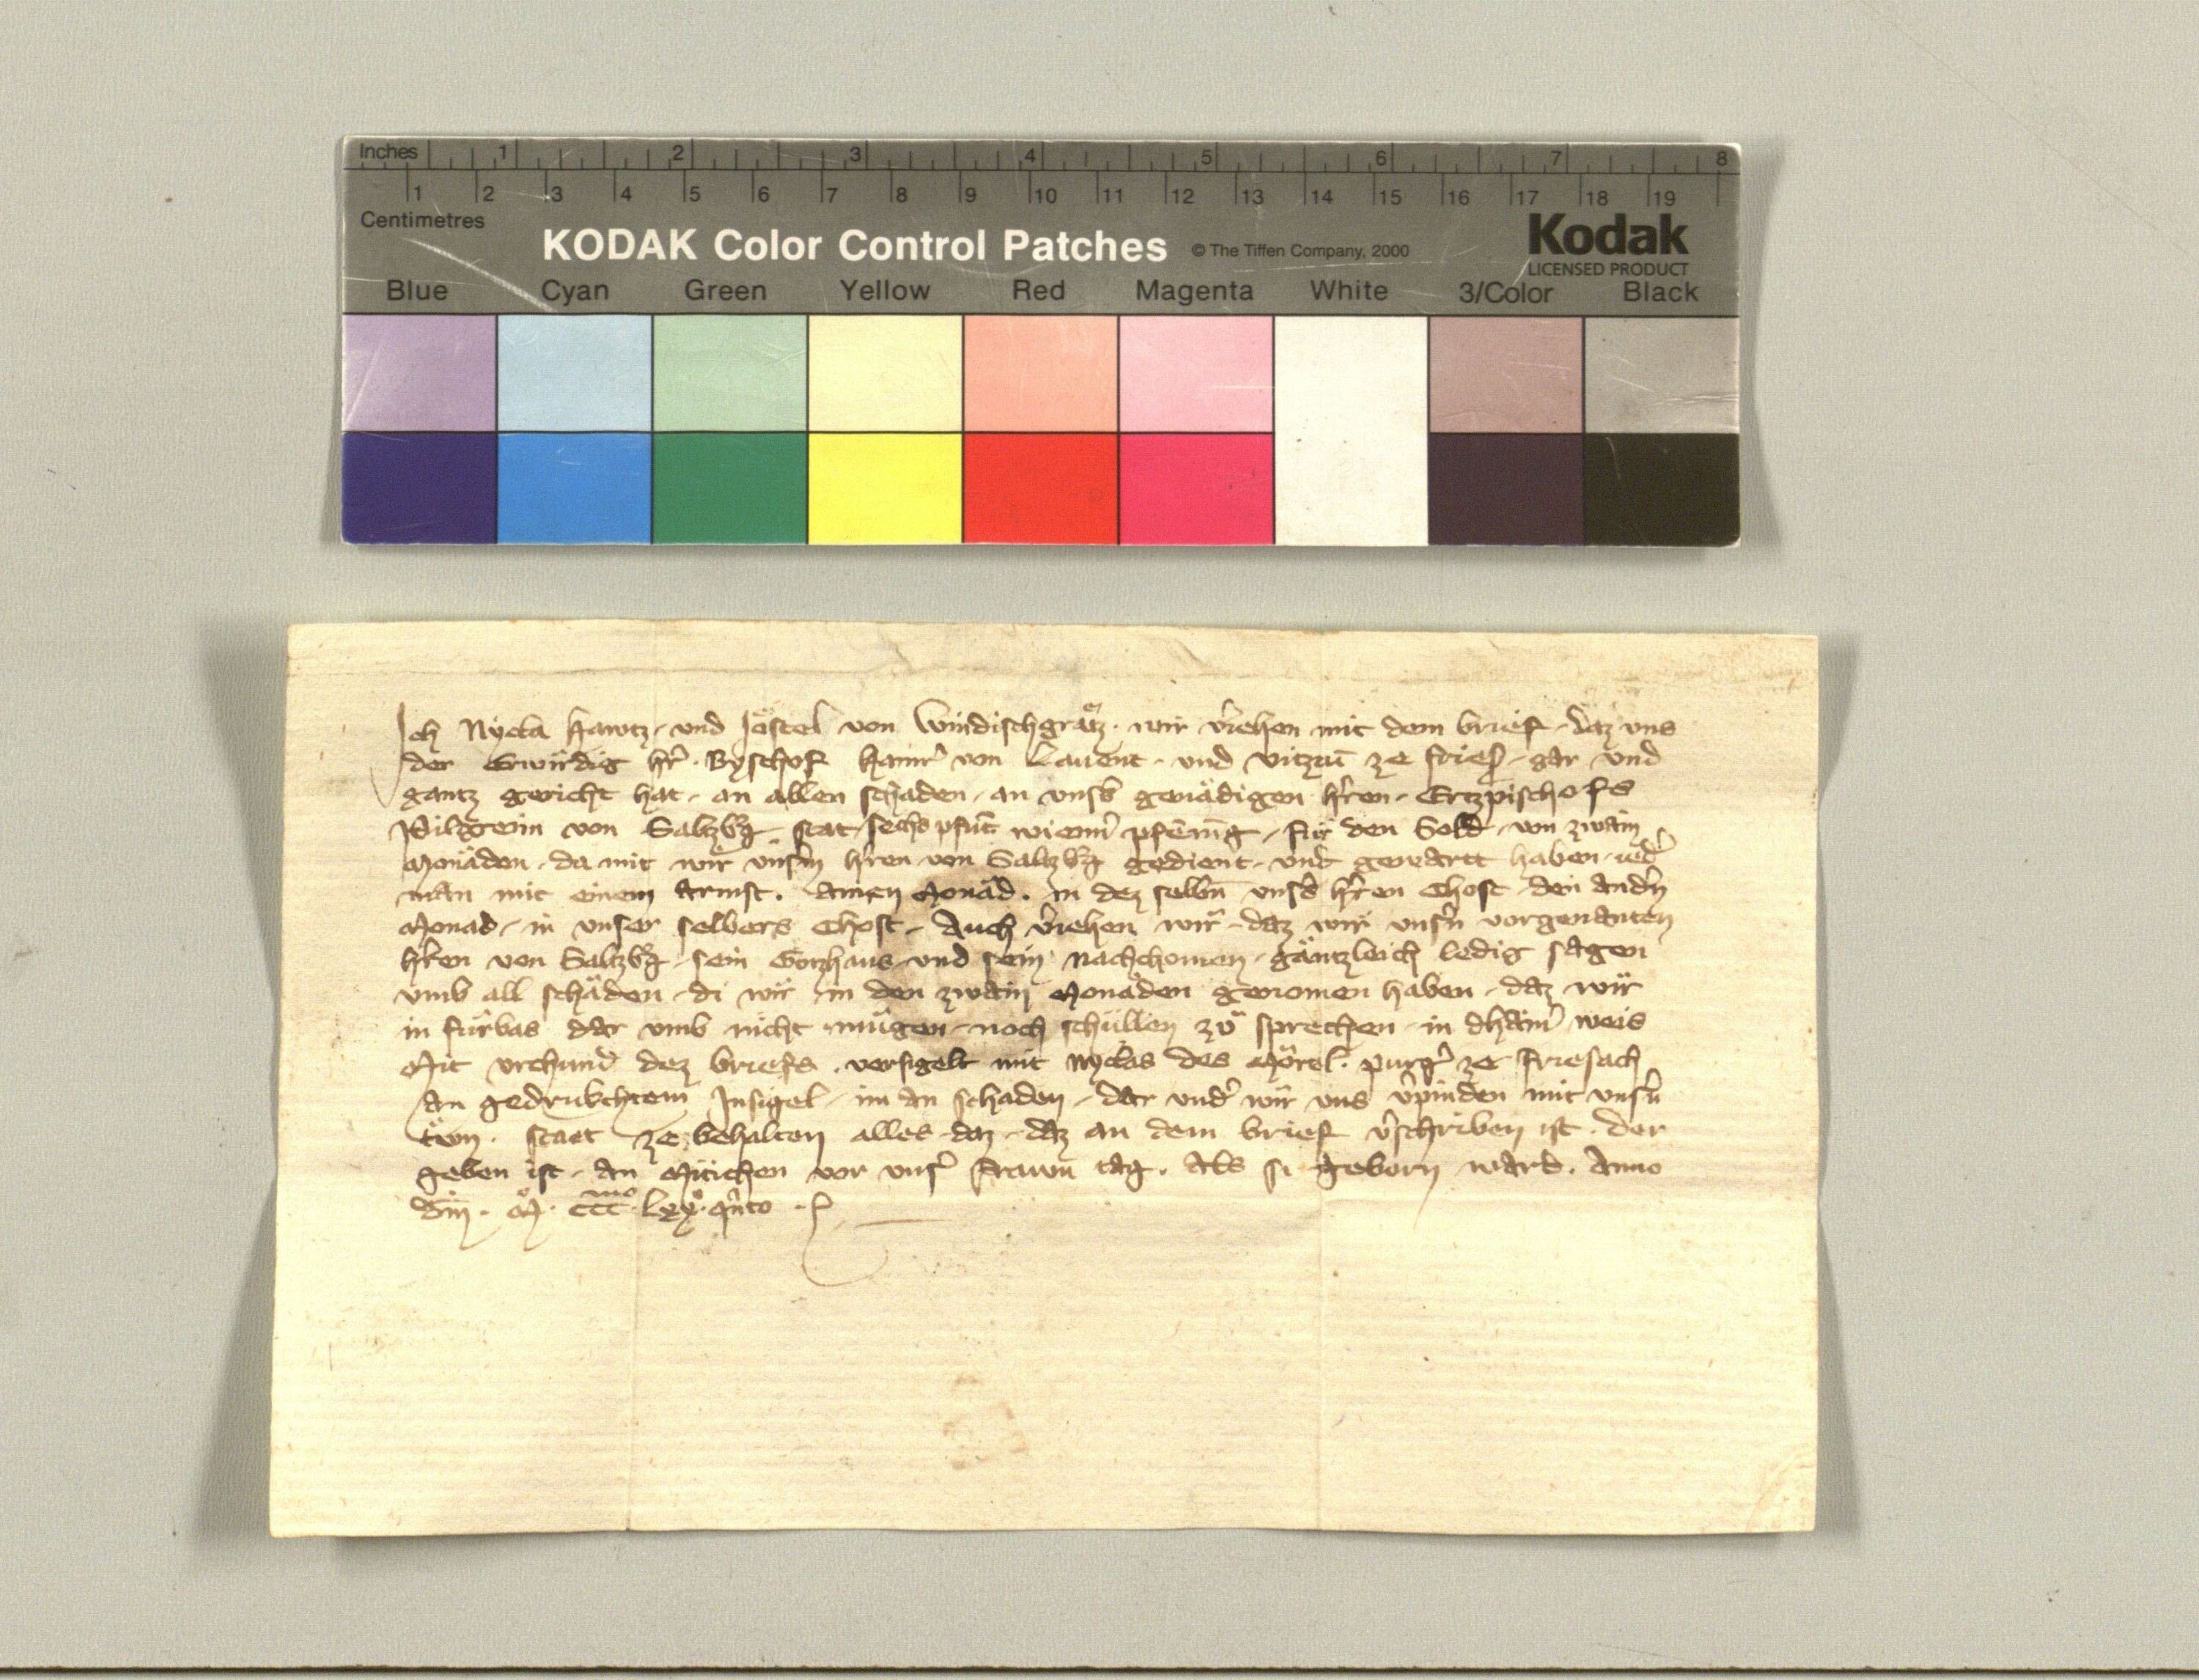 Inches 1 2 3 4 5 6 7 8
1 2 3 4 5 6 7 8 9 10 11 12 13 14 15 16 17 18 19
Centimetres
KODAK Color Control Patches © The Tiffen Company, 2000 Kodak
LICENSED PRODUCT
Blue Cyan Green Yellow Red Magenta White 3/Color Black
Ich Nycla und Jöstel von Windischgrätz · wir v̓iehen mit dem brief · daz uns
der Erwirdig hr̓ · Byschof von Lauent · und vitzū ze · gar und
gantz gericht hat · an allen schaden · an vnsˢ genädigen hr̓en · Ertzpischofs
Pilgreim von Saltzb̓g · stat sechs pfūt wienn̓ pfēnīg · für den Sold · von zwain
Monäden · da mit wir vns̓m hr̓en von Saltzb̓g gedient · und gewartt haben · ied̓
man mit einem armst · ainen Monäd · in dez selbn̄ vnsˢ hr̓en Chost · den and̓n
Monad · in unser selbers Chost · Auch v̓iehen wir · daz wir vns̓n vorgenanten
hr̓en von Saltzb̓g · sein Gotzhaus und sein nachchomen · gäntzleich ledig sagen
umb all schäden · di wir in den zwain Monäden genomen haben · daz wir
in fürbas dar umb nicht mügen · noch schüllen zů sprechen · in dhain̓ weis
Mit vrchund dez briefs · versigelt mit Nyclas des Mörel · purg̓ ze Friesach
an gedrukchtem Insigel · im an schaden · dar vnd̓ wir uns v̓pinden mit vns̓n
trwn · staet ze behalten alles daz · daz an dem brief v̓schriben ist · der
geben ist · an Mitichen vor vns̓ frawn tag · als si geborn ward · Anno
dn̄i · M̊ · ccc̅ᵐᵒ · lxx̊ · qn̓to ·